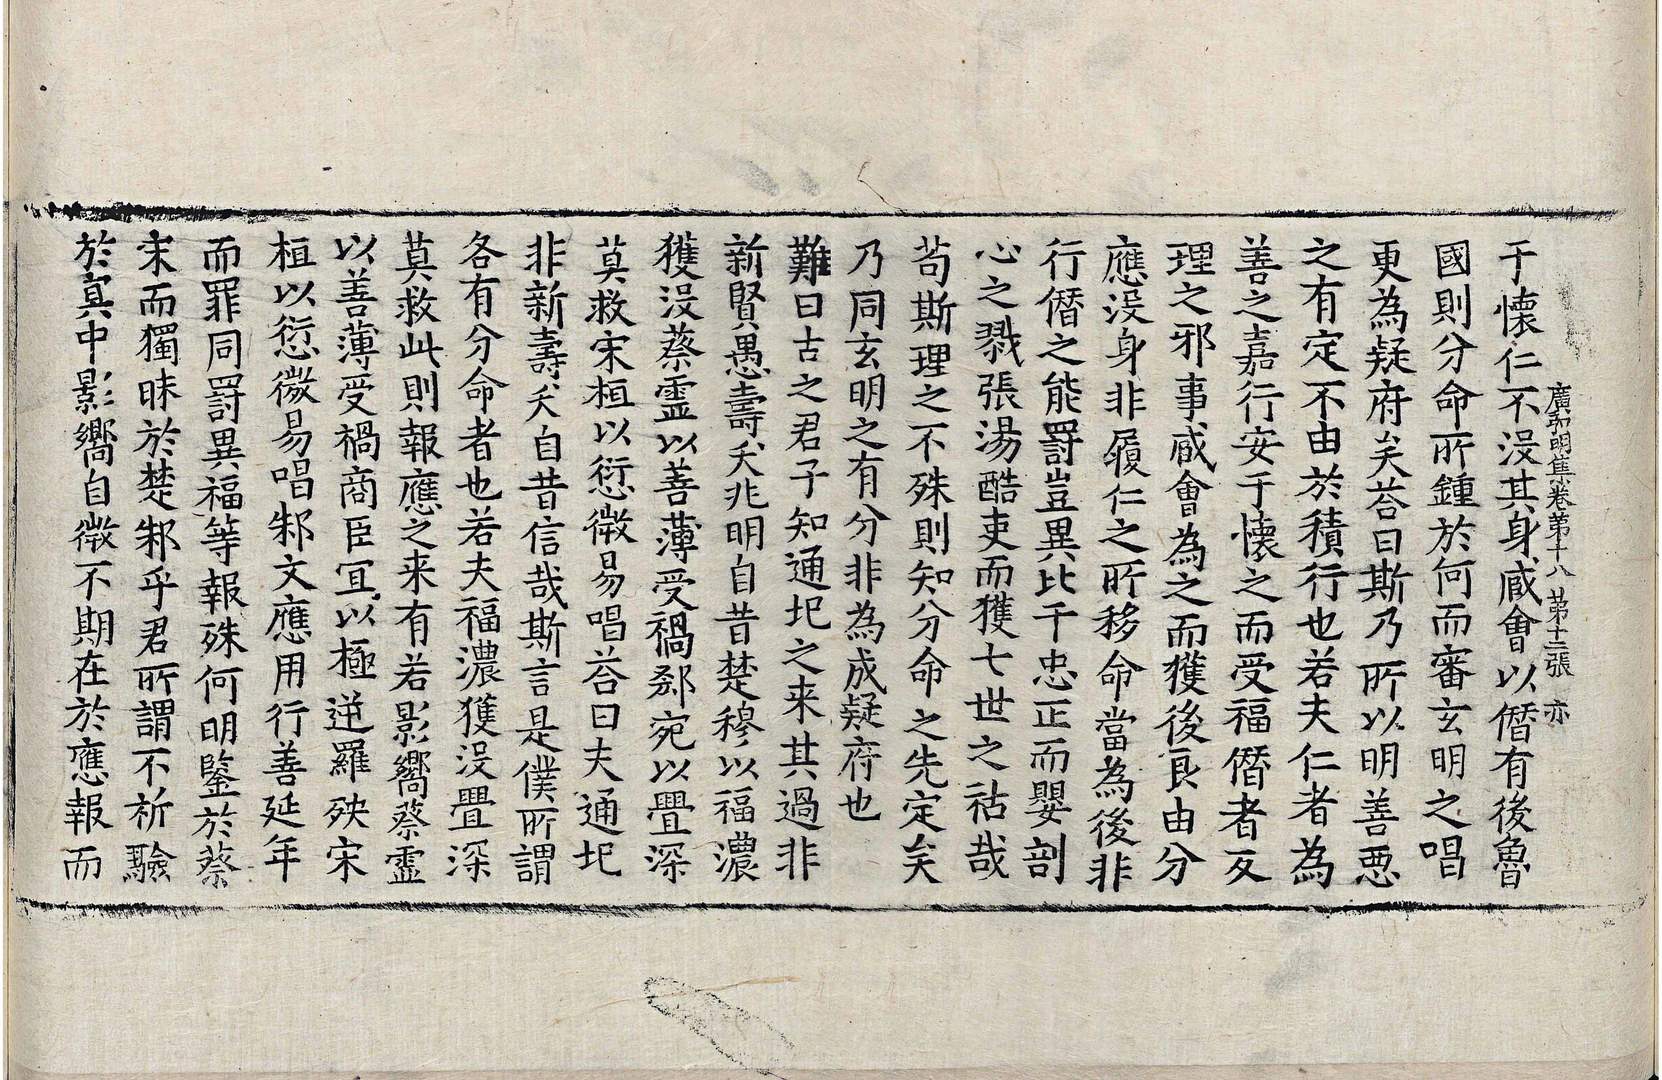 廣弘明集卷第十八 第十三張 亦
于懷仁不没其身臧會以僭有後魯
國則分命所鍾於何而審玄明之唱
更為疑府矣荅曰斯乃所以明善惡
之有定不由於積行也若夫仁者為
善之嘉行安于懷之而受福僭者反
理之邪事臧會為之而獲後良由分
應没身非履仁之所移命當為後非
行僭之能罸豈異比干忠正而嬰剖
心之戮張湯酷吏而獲七世之祜哉
苟斯理之不殊則知分命之先定矣
乃同玄明之有分非為成疑府也
難曰古之君子知通圯之来其過非
新賢愚壽夭兆明自昔楚穆以福濃
獲没蔡靈以善薄受禍郄宛以舋深
莫救宋桓以愆微易唱荅曰夫通圯
非新壽夭自昔信哉斯言是僕所謂
各有分命者也若夫福濃獲没舋深
莫救此則報應之来有若影嚮蔡靈
以善薄受禍商臣冝以極逆羅殃宋
桓以愆微易唱邾文應用行善延年
而罪同罸異福等報殊何明鑒於蔡
宋而獨昧於楚邾乎君所謂不祈驗
於冥中影嚮自徵不期在於應報而